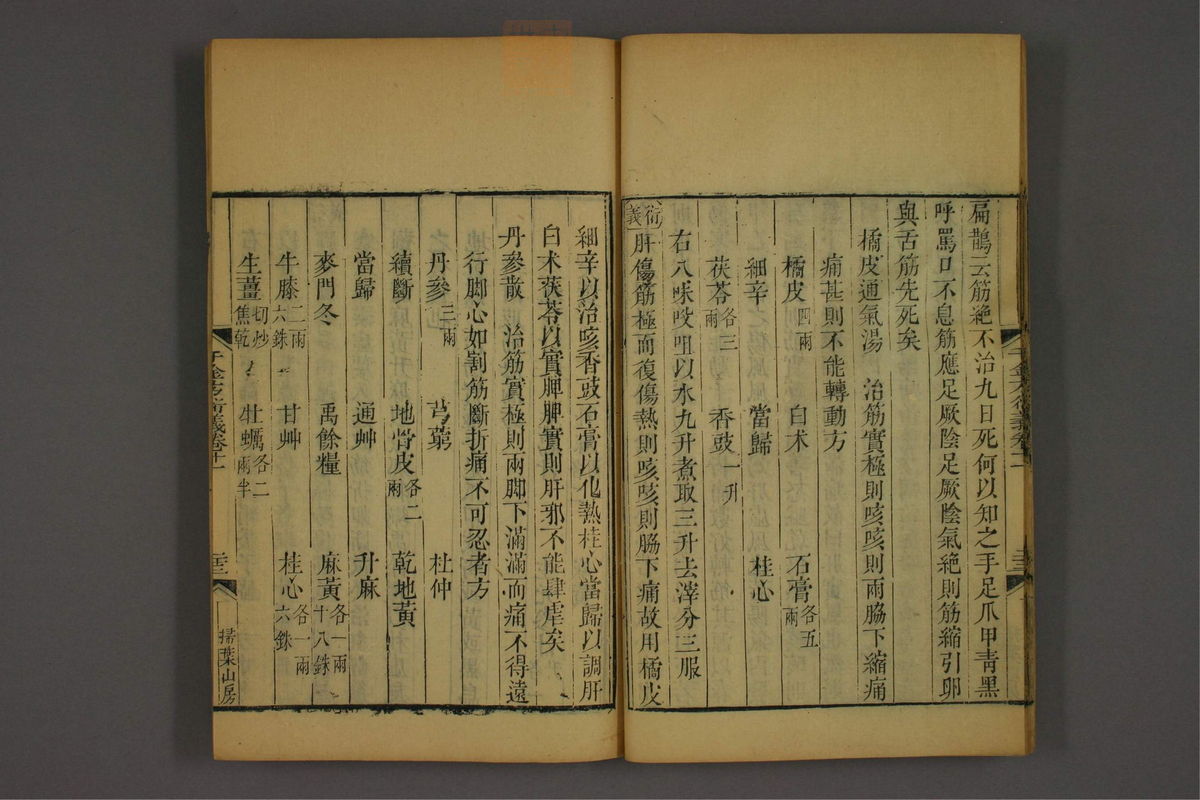 扁鵲云筋絶不治九日死何以知之手足爪甲靑黑
呼罵口不息筋應足厥陰足厥陰氣絶則筋縮引卵
與舌筋先死矣
橘皮通氣湯 治筋實極則咳咳則兩脇下縮痛
痛甚則不能轉動方
橘皮四兩 白术 石膏各五兩
細辛 當歸 桂心
茯苓各三兩 香豉一升
右八味㕮咀以水九升煮取三升去滓分三服
衍義 肝傷筋極而復傷熱則咳咳則脇下痛故用橘皮
千金方衍義卷十一 三三
細辛以治咳香豉石膏以化熱桂心當歸以調肝
白术茯苓以實脾脾實則肝邪不能肆虐矣
丹參散 治筋實極則兩脚下滿滿而痛不得遠
行脚心如割筋斷折痛不可忍者方
丹參三兩 芎藭 杜仲
續斷 地骨皮各二兩 乾地黃
當歸 通艸 升麻
麥門冬 禹餘糧 麻黃各一兩十八銖
牛膝二兩六銖 甘艸 桂心各一兩六銖
生薑切炒焦乾 牡蠣各二兩半
千金方衍義卷十一 三三 掃葉山房